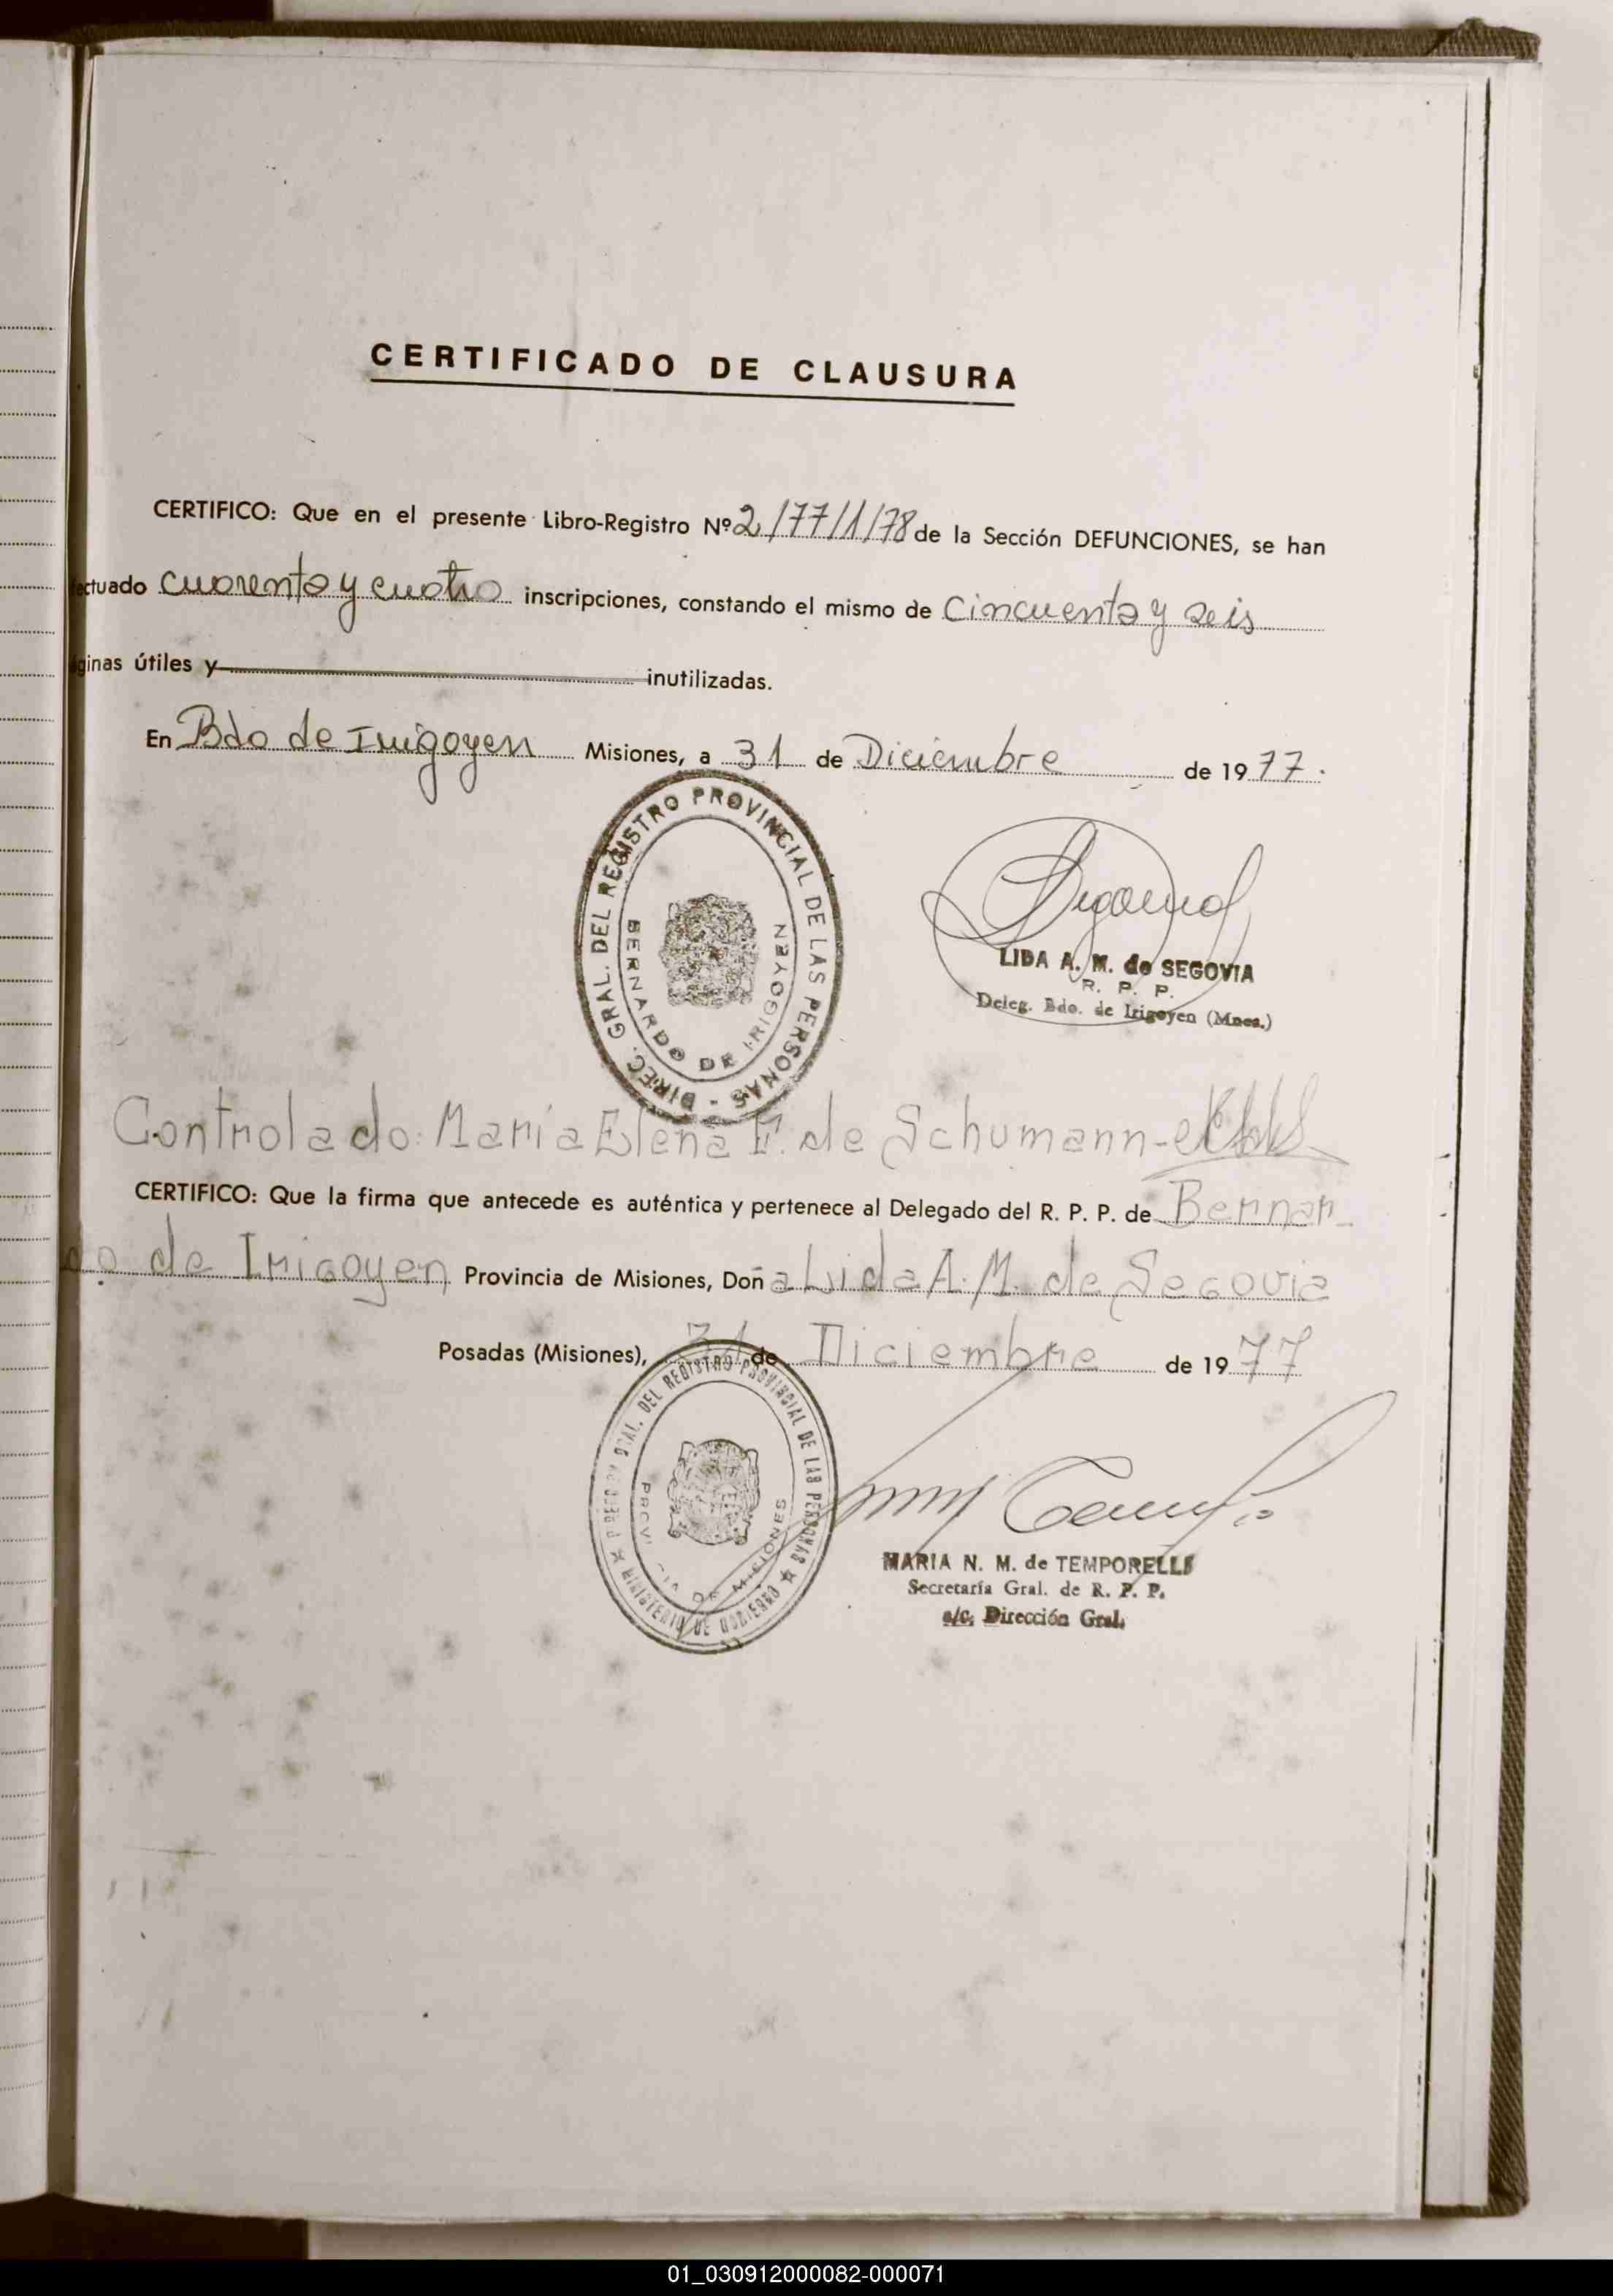 CERTIFICADO DE CLAUSURA
CERTIFICO: Que en el presente Libro-Registro Nº 2/77/1/78 de la Sección DEFUNCIONES, se han
ectuado cuarenta y cuatro inscripciones, constando el mismo de Cincuenta y seis
ginas útiles y inutilizadas.
En Bdo de Irigoyen Misiones, a 31 de Diciembre de 1977.
DIREC. GRAL. DEL REGISTRO PROVINCIAL DE LAS PERSONAS -
BERNARDO DE IRIGOYEN
LIDA A. M. de SEGOVIA
R. P. P.
Deleg. Bdo. de Irigoyen (Mnes.)
Controlado: María Elena F. de Schumann-
CERTIFICO: Que la firma que antecede es auténtica y pertenece al Delegado del R. P. P. de Bernar
do de Irigoyen Provincia de Misiones, Doña Lida A. M. de Segovia
Posadas (Misiones), 31 de Diciembre de 1977
GRAL. DEL REGISTRO PROVINCIAL DE LAS PERSONAS
MINISTERIO DE GOBIERNO
DE MISIONES
MARIA N. M. de TEMPORELLI
Secretaría Gral. de R. P. P.
a/c. Dirección Gral.
01_030912000082-000071